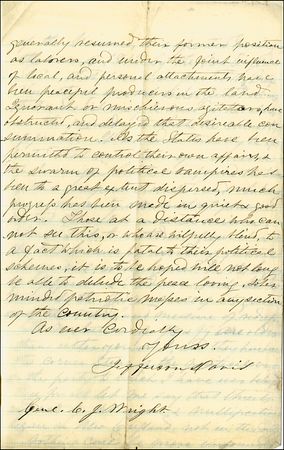 generally resumed their former position
as laborers, and under the joint influence
of local, and personal attachments, have
been peaceful producers in the land.
Ignorant or mischievous agitators, have
obstructed, and delayed that desireable con
summation. As the States have been
permitted to control their own affairs, &
the swarm of political vampires has
been to a great extent dispersed, much
progress has been made in quiet & good
order. Those at a distance who can
not see this, or who are wilfully blind, to
a fact which is fatal to their political
schemes, it is to be hoped will not long
be able to delude the peace loving, sober
minded patriotic masses in any section
of the Country.
As ever Cordially
Yours.
Jefferson Davis
Genl. C. J. Wright